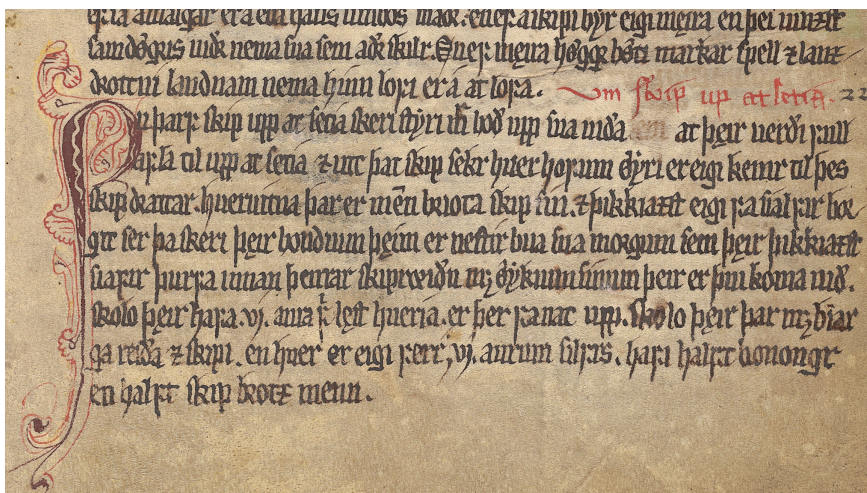 samdøgris uidr nema sua sem adr skilr. En ef meira høggr bøti markar spell ⁊ land
drottni landnam nema hinn lofi er a at lofa. Vm skip up at setia. 22
Nu þarf skip upp at setia skeri styri m̅ bod upp sua uida at þeir uerdi full
til upp at setia ⁊ ut þat skip sekr huer horum øyri er eigi kemr til þes
skip drattar. hueruitna þar er men̅ briota skip sin. ⁊ þikkiazst eigi fa sialfir bor
git ser þa skeri þeir bondum þeim er nestir bua sua morgum sem þeir þikkiazst
þurfa innan þerrar skipreidu mꝫ øykum sinum þeir er þui koma uid.
skolo þeir hafa .vi. aura f lest hueria. er þer fa nat upp. skolo þeir þar mꝫ biar
ga reida ⁊ skipi. en huer er eigi ferr .vi. aurum silfrs. hafi halft konongr
en halft skip brotz menn.